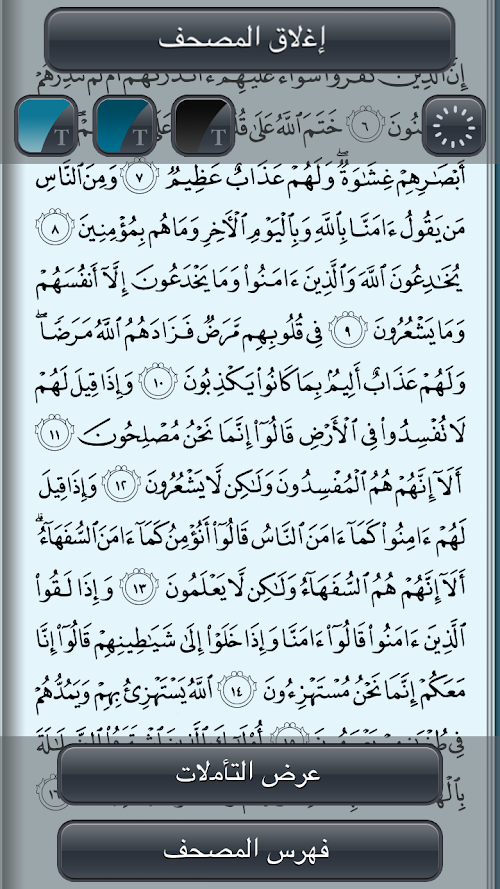 إغلاق المصحف
إِنَّ ٱلَّذِينَ كَفَرُوا۟ سَوَآءٌ عَلَيْهِمْ ءَأَنذَرْتَهُمْ أَمْ لَمْ تُنذِرْهُمْ
٦ خَتَمَ ٱللَّهُ عَلَىٰ
T T T
أَبْصَـٰرِهِمْ غِشَـٰوَةٌ ۖ وَلَهُمْ عَذَابٌ عَظِيمٌ ٧ وَمِنَ ٱلنَّاسِ
مَن يَقُولُ ءَامَنَّا بِٱللَّهِ وَبِٱلْيَوْمِ ٱلْـَٔاخِرِ وَمَا هُم بِمُؤْمِنِينَ ٨
يُخَـٰدِعُونَ ٱللَّهَ وَٱلَّذِينَ ءَامَنُوا۟ وَمَا يَخْدَعُونَ إِلَّآ أَنفُسَهُمْ
وَمَا يَشْعُرُونَ ٩ فِى قُلُوبِهِم مَّرَضٌ فَزَادَهُمُ ٱللَّهُ مَرَضًا ۖ
وَلَهُمْ عَذَابٌ أَلِيمٌۢ بِمَا كَانُوا۟ يَكْذِبُونَ ١٠ وَإِذَا قِيلَ لَهُمْ
لَا تُفْسِدُوا۟ فِى ٱلْأَرْضِ قَالُوٓا۟ إِنَّمَا نَحْنُ مُصْلِحُونَ ١١
أَلَآ إِنَّهُمْ هُمُ ٱلْمُفْسِدُونَ وَلَـٰكِن لَّا يَشْعُرُونَ ١٢ وَإِذَا قِيلَ
لَهُمْ ءَامِنُوا۟ كَمَآ ءَامَنَ ٱلنَّاسُ قَالُوٓا۟ أَنُؤْمِنُ كَمَآ ءَامَنَ ٱلسُّفَهَآءُ ۗ
أَلَآ إِنَّهُمْ هُمُ ٱلسُّفَهَآءُ وَلَـٰكِن لَّا يَعْلَمُونَ ١٣ وَإِذَا لَقُوا۟
ٱلَّذِينَ ءَامَنُوا۟ قَالُوٓا۟ ءَامَنَّا وَإِذَا خَلَوْا۟ إِلَىٰ شَيَـٰطِينِهِمْ قَالُوٓا۟ إِنَّا
مَعَكُمْ إِنَّمَا نَحْنُ مُسْتَهْزِءُونَ ١٤ ٱللَّهُ يَسْتَهْزِئُ بِهِمْ وَيَمُدُّهُمْ
عرض التأملات
١٦
فهرس المصحف